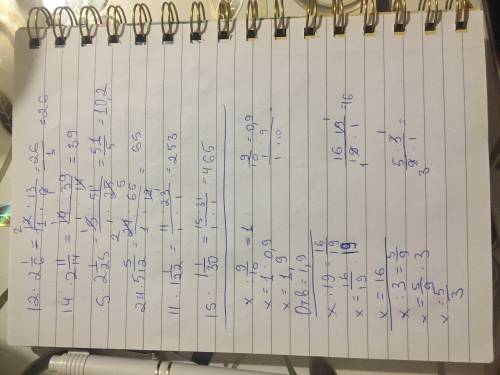 12 · 2 1/6 = 12/1 · 13/6 = 26/1 = 26
14 · 2 11/14 = 14/1 · 39/14 = 39
5 · 2 1/25 = 5/1 · 51/25 = 51/5 = 10,2
24 · 5 5/12 = 24/1 · 65/12 = 65
11 · 1 1/22 = 11/1 · 23/1 = 253
15 · 1 1/30 = 15/1 · 31/1 = 465
x : 9/10 = 1
9/10 = 0,9
x = 1 · 0,9
1/1 · 9/10
x = 1,9
Отв = 1,9
x : 19 = 16/19
x = 16/19 · 19
16/19 · 19/1 = 16
x = 16
x : 3 = 5/9
x = 5/9 · 3
5/9 · 3/1 =
x = 5/3